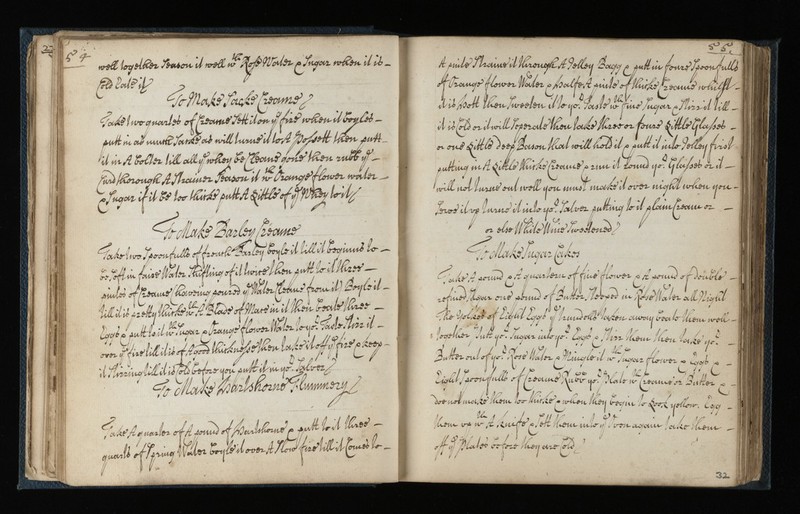 54
well together Season it well wth Rose Water & Sugar when it is
Cold Eate it
To Make Sacke Creame
Take two quartes of Creame Sett it on ye fire when it boyles
putt in as much Sacke as will turne it to A Possett then putt
it in A Colter till all ye whey be Cleane gone then rubb ye
Curd thorough A Strainer Season it wth Orange flower water
& Sugar if it be too thicke putt A Little of ye Whey to it
To Make Barley Creame
Take two Spoonfulls of french Barley boyle it till it beginns to
be Soft in faire Water Shifting of it twice then putt to it three
pintes of Creame haveing poured ye Water Cleane from it Boyle it
till it is pretty thicke wth A Blade of Mace in it then beate three
Eggs & putt to it wth Sugar & Orange flower Water to yor Taste Stirr it
over ye fire till it is of A good thicknesse then take it off ye fire & keep
it Stirring till it is Cold before you putt it in yor Salver
To Make Hartshorne Flummery
Take A quarter of A pound of Hartshorne & putt to it three
quarts of Spring Water boyle it over A Slow fire till it Comes to
55
A pinte Straine it through A Jelley Bagg & putt in foure Spoonfulls
of Orange flower Water & halfe A pinte of thicke Creame whilst
it is Hott then Sweeten it to yor Taste wth fine Sugar & Stirr it till
it is Cold or it will Seperate then take three or foure Little Glasses
or one Little deep Bason that will hold it & putt it into Jelley first
putting in A Little thicke Creame & run it round yor Glasses or it
will not turne out well you must make it over night when you
Serve it up turne it into yor Salver putting to it plaine Cream or
or else White Wine Sweetened
To Make Sugar Cakes
Take A pound & A quartern of fine flower & A pound of Double
refined Sugar one pound of Butter Steeped in Rose Water all Night
the Yolkes of Eight Eggs ye Treads taken away beate them well
together Putt yor Sugar into yor Eggs & Stirr them then take yor
Butter out of yor Rose Water & Mingle it wth Sugar flower & Eggs &
Eight Spoonfulls of Creame Rubb yor Plate wth Creame or Butter &
doe not make them too thicke & when they begin to Look yellow
them up wth A knife & Sett them into ye Oven again take them
off ye Plates before they are Cold
32